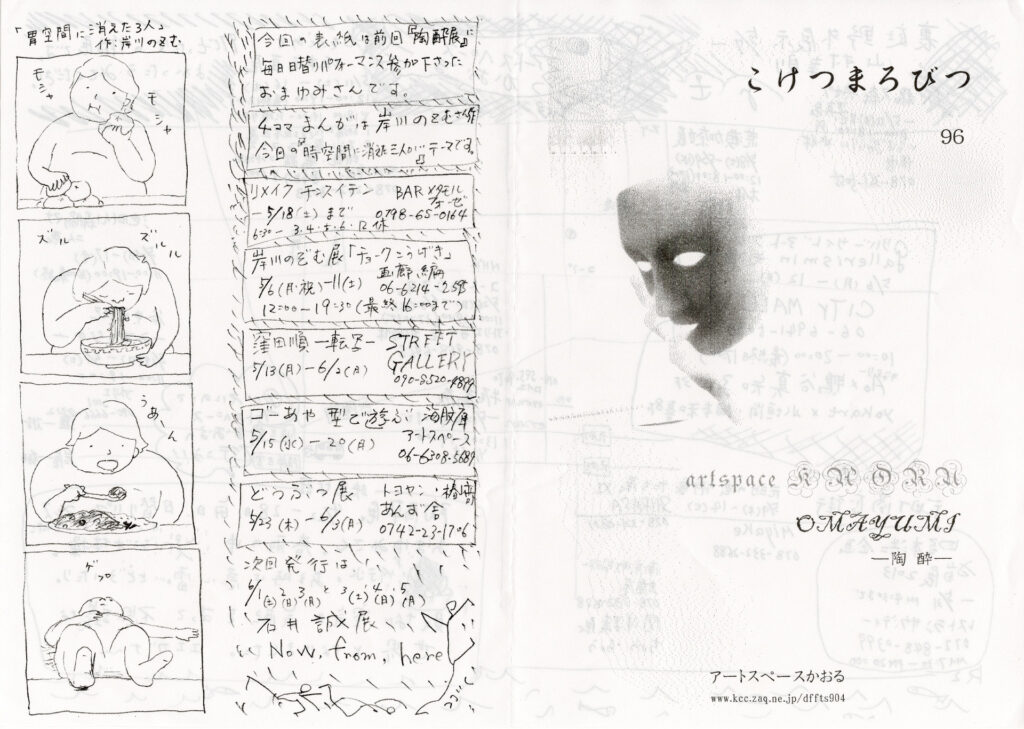 「胃空間に消えた3人」
作:岸川のぞむ
モシャ
モシャ
ズルル
ズルル
うあーん
ゲプ
今回の表紙は前回『陶酔展』で
毎日日替りパフォーマンス参加下さった
おまゆみさんです。
4コマまんがは岸川のぞむさん作
今回の『時空間に消えた三人』がテーマです。
リメイク テンスイテン BAR メタモル
ー5/18(土)まで 0798-65-0164
6:30ー 3.4.5.6.12休
岸川のぞむ展「チョークこうげき」
画廊、編
5/6(月・祝)ー11(土) 06-6214-2595
12:00ー19:30(最終16:00まで)
窪田順ー転写ー STREET
GALLERY
5/13(月)ー6/2(月) 090-8520-4899
ゴーあや 型で遊ぶ 海月文庫
アートスペース
5/15(水)ー20(月)
06-6308-5689
どうぶつ展 トヨヤン・椿崎
あんず舎
5/23(木)ー6/3(月) 0742-23-1706
次回発行は
6/1(土) 2(日) 3(月) と 3(土) 4(日) 5(月)
石井誠展
Now, from, here
こけつまろびつ
96
artspace KAORU
OMAYUMI
―陶 酔―
アートスペースかおる
www.kcc.zaq.ne.jp/dffts904